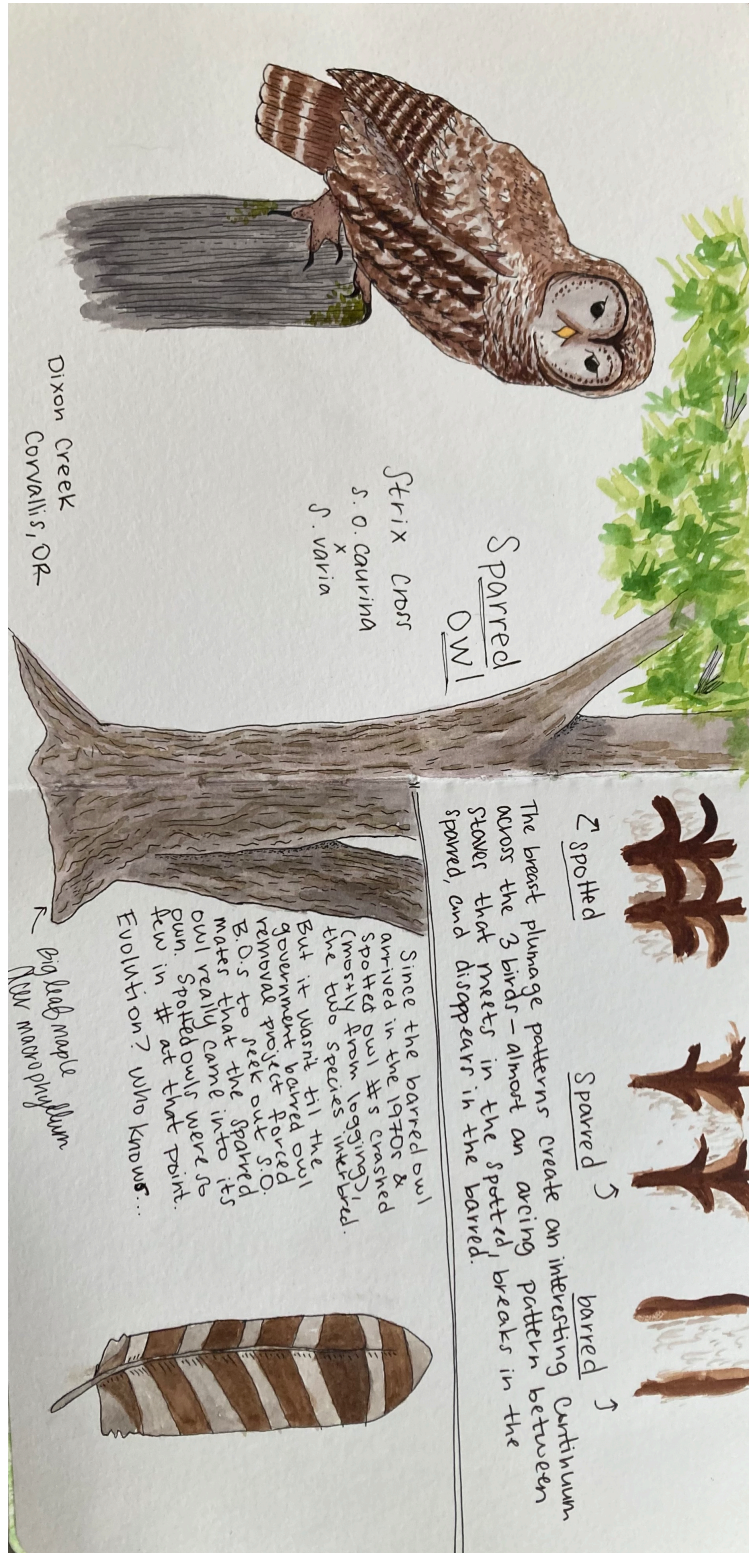 Sparred
Owl
Strix cross
S. o. caurina
x
S. varia
Dixon Creek
Corvallis, OR
spotted
Sparred
barred
The breast plumage patterns create an interesting continuum
across the 3 birds - almost an arcing pattern between
staves that meets in the spotted, breaks in the
sparred, and disappears in the barred.
Since the barred owl
arrived in the 1970s &
spotted owl #s crashed
(mostly from logging),
the two species interbred.
But it wasn't til the
government barred owl
removal project forced
B.O.s to seek out S.O.
mates that the sparred
owl really came into its
own. Spotted owls were so
few in # at that point.
Evolution? Who knows...
Big leaf maple
Acer macrophyllum